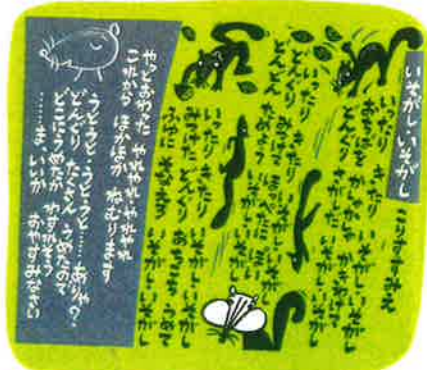 いそがし・いそがし
こりすすみえ
いったり きたり いそがし いそがし
おちばを かしゃかしゃ かきわけて
どんぐり さがして いそがし いそがし
いったり きたり いそがし いそがし
どんぐり みつけて ほっぺたに ほい
いったり きたり いそがし いそがし
みつけた どんぐり あちこち うめて
ふゆに そなえる いそがし いそがし
やっとおわった やれやれ・やれやれ
これから ほかほか ねむります
うと・うと・うと・うと……ありゃ?
どんぐり たくさん うめたので
どこにうめたか わすれそう
……ま、いいか おやすみなさい